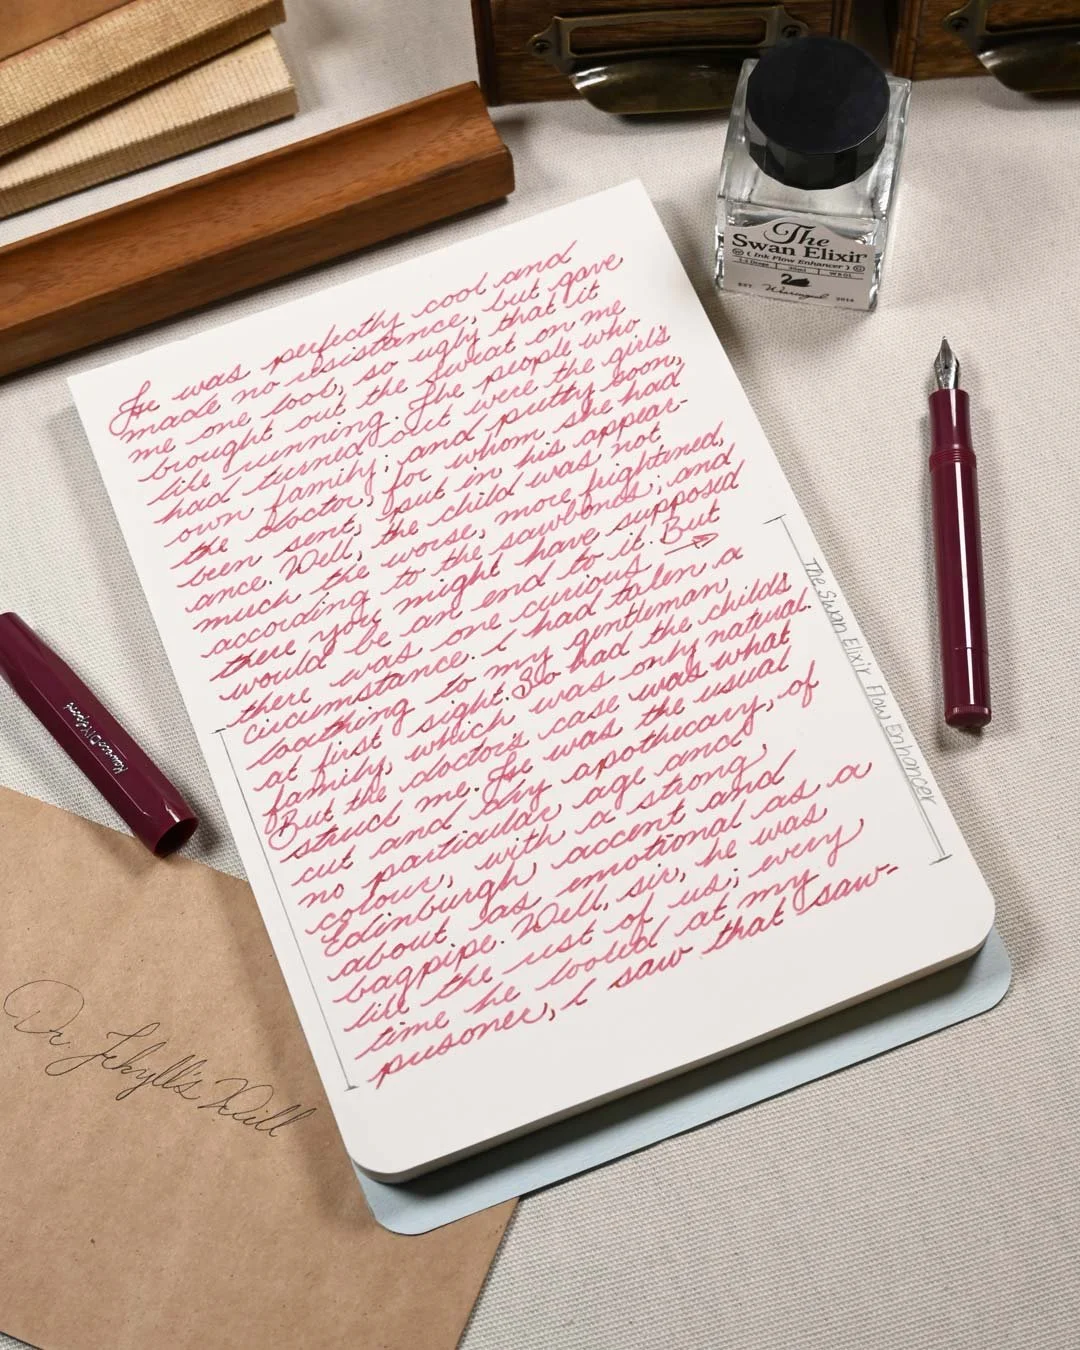 He was perfectly cool and
made no resistance, but gave
me one look, so ugly that it
brought out the sweat on me
like running. The people who
had turned out were the girl's
own family; and putty soon,
the doctor, for whom she had
been sent, put in his appear-
ance. Well, the child was not
much the worse, more frightened,
according to the sawbones; and
there you might have supposed
would be an end to it. But
there was one curious →
circumstance. I had taken a
loathing to my gentleman
at first sight. So had the childs
family, which was only natural.
But the doctor's case was what
struck me. He was the usual
cut and dry apothecary, of
no particular age and
colour, with a strong
Edinburgh accent and
about as emotional as a
bagpipe. Well, sir, he was
like the rest of us; every
time he looked at my
prisoner, I saw that saw-
The Swan Elixir Flow Enhancer
The
Swan Elixir
( Ink Flow Enhancer )
EST. Wearingeul 2014
Kaweco DIA Sport
Dr. Jekyll's Will